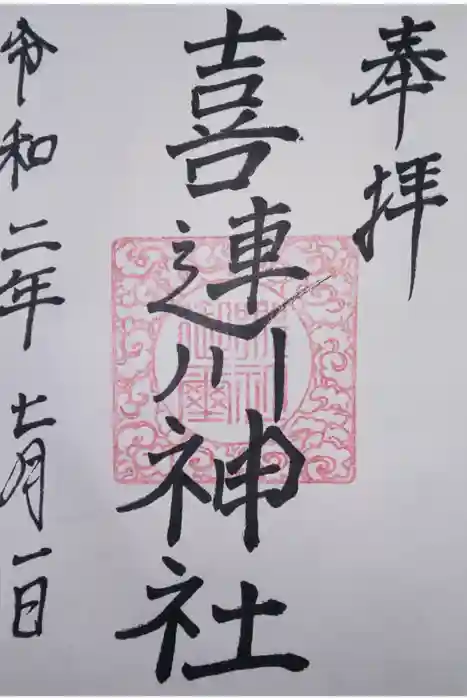 奉拝
喜連川神社
令和二年七月一日